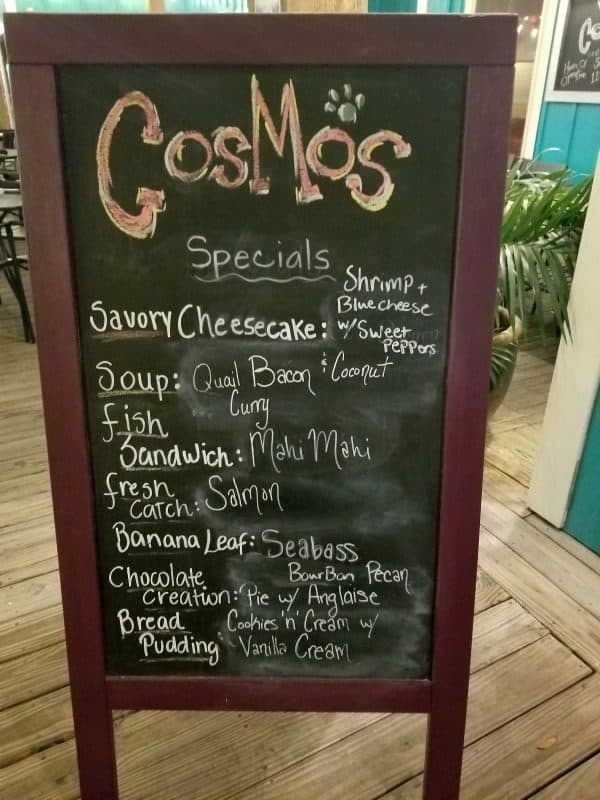 CosMo's
Specials
Savory Cheesecake: Shrimp +
Blue cheese
w/ Sweet
PePPers
Soup: Quail Bacon & Coconut
Curry
fish
Sandwich: Mahi Mahi
fresh
catch: Salmon
Banana Leaf: Seabass
Chocolate
creation: BourBon Pecan
Pie w/ Anglaise
Bread
Pudding: Cookies 'n' Cream w/
Vanilla Cream